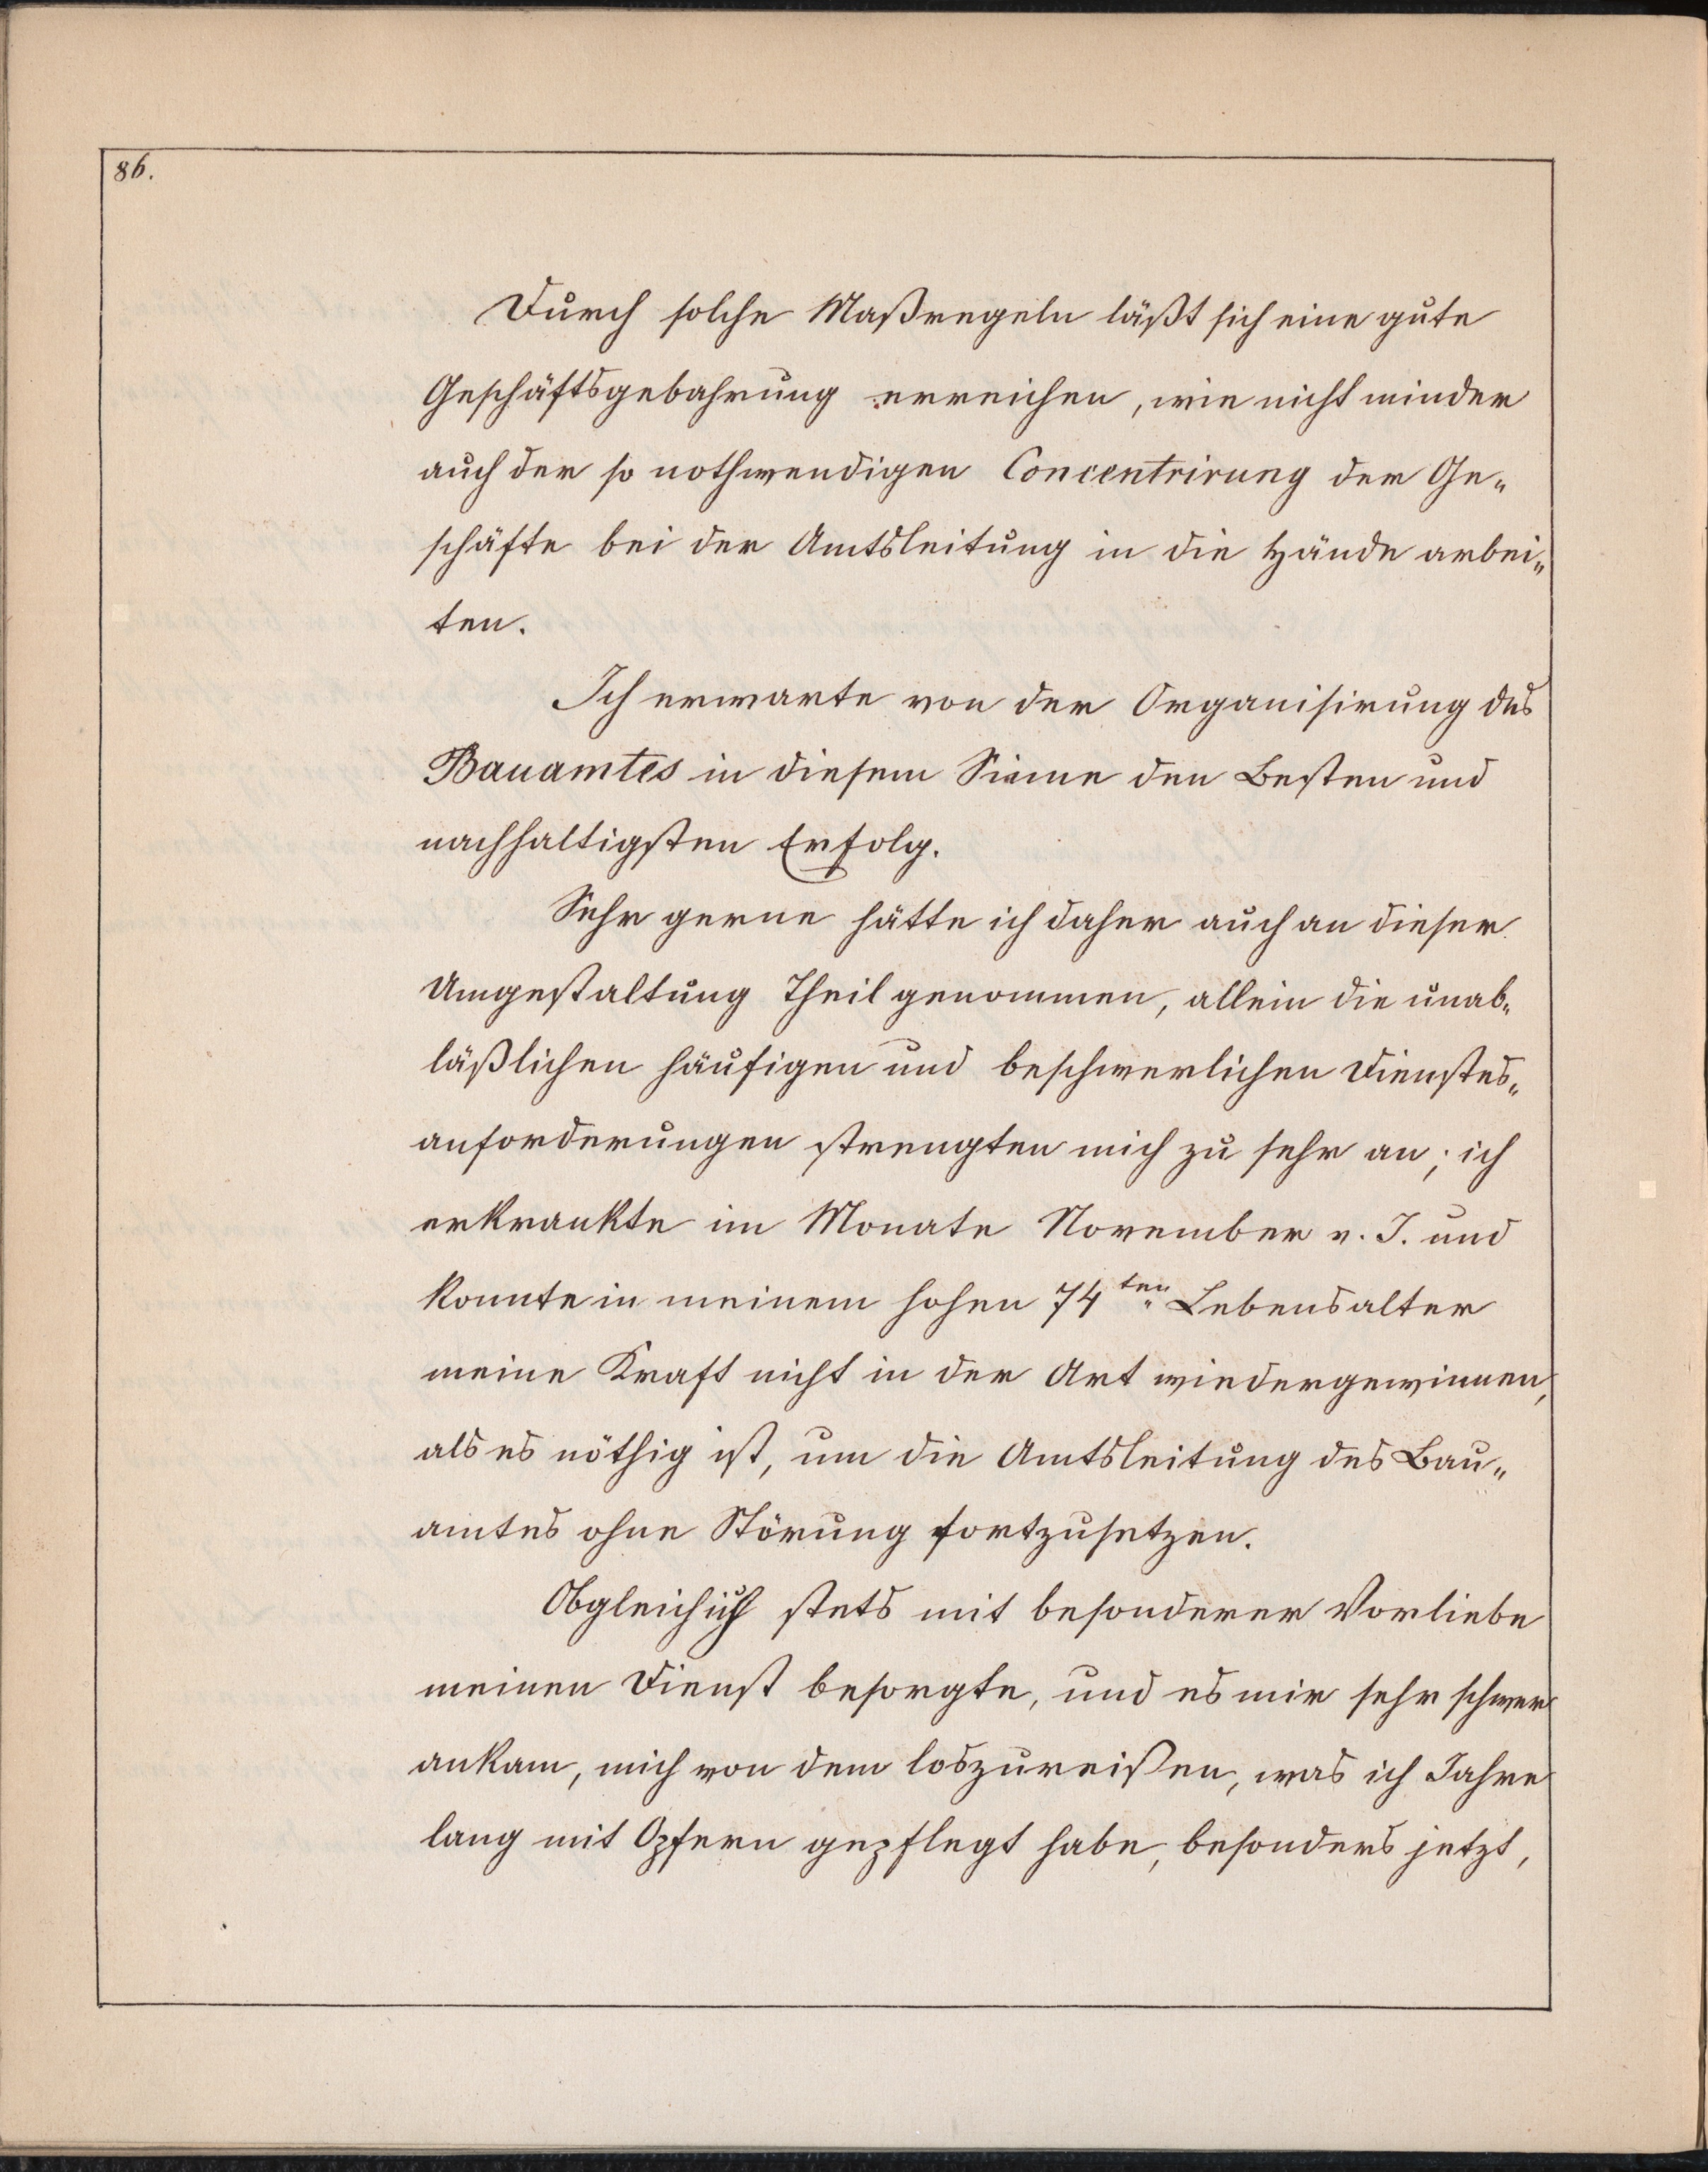 86.
Durch solche Maßregeln läßt sich eine gute
Geschäftsgebahrung erreichen, wie nicht minder
auch der so nothwendigen Concentrirung der Ge„
schäfte bei der Amtsleitung in die Hände arbei„
ten.
Ich erwarte von der Organisirung des
Bauamtes in diesem Sinne den Besten und
nachhaltigsten Erfolg.
Sehr gerne hätte ich daher auch an dieser
Umgestaltung Theil genommen, allein die unab„
läßlichen häufigen und beschwerlichen Dienstes„
anforderungen strengten mich zu sehr an; ich
erkrankte im Monate November v. J. und
konnte in meinem hohen 74ten Lebensalter
meine Kraft nicht in der Art wiedergewinnen,
als es nöthig ist, um die Amtsleitung des Bau„
amtes ohne Störung fortzusetzen.
Obgleich ich stets mit besonderer Vorliebe
meinen Dienst besorgte, und es mir sehr schwer
ankam, mich von dem loszureißen, was ich Jahre
lang mit Opfern gepflegt habe, besonders jetzt,